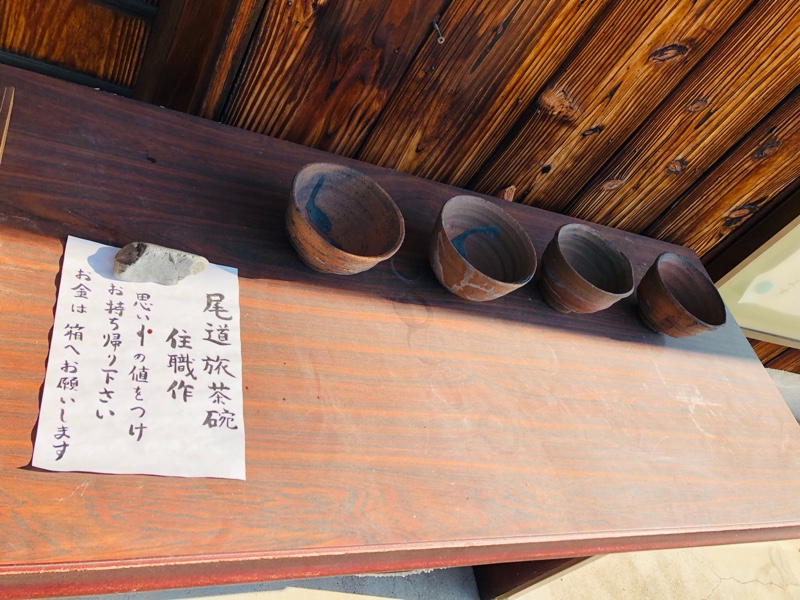 尾道旅茶碗
住職作
思い の値をつけ
お持ち帰り下さい
お金は 箱へお願いします